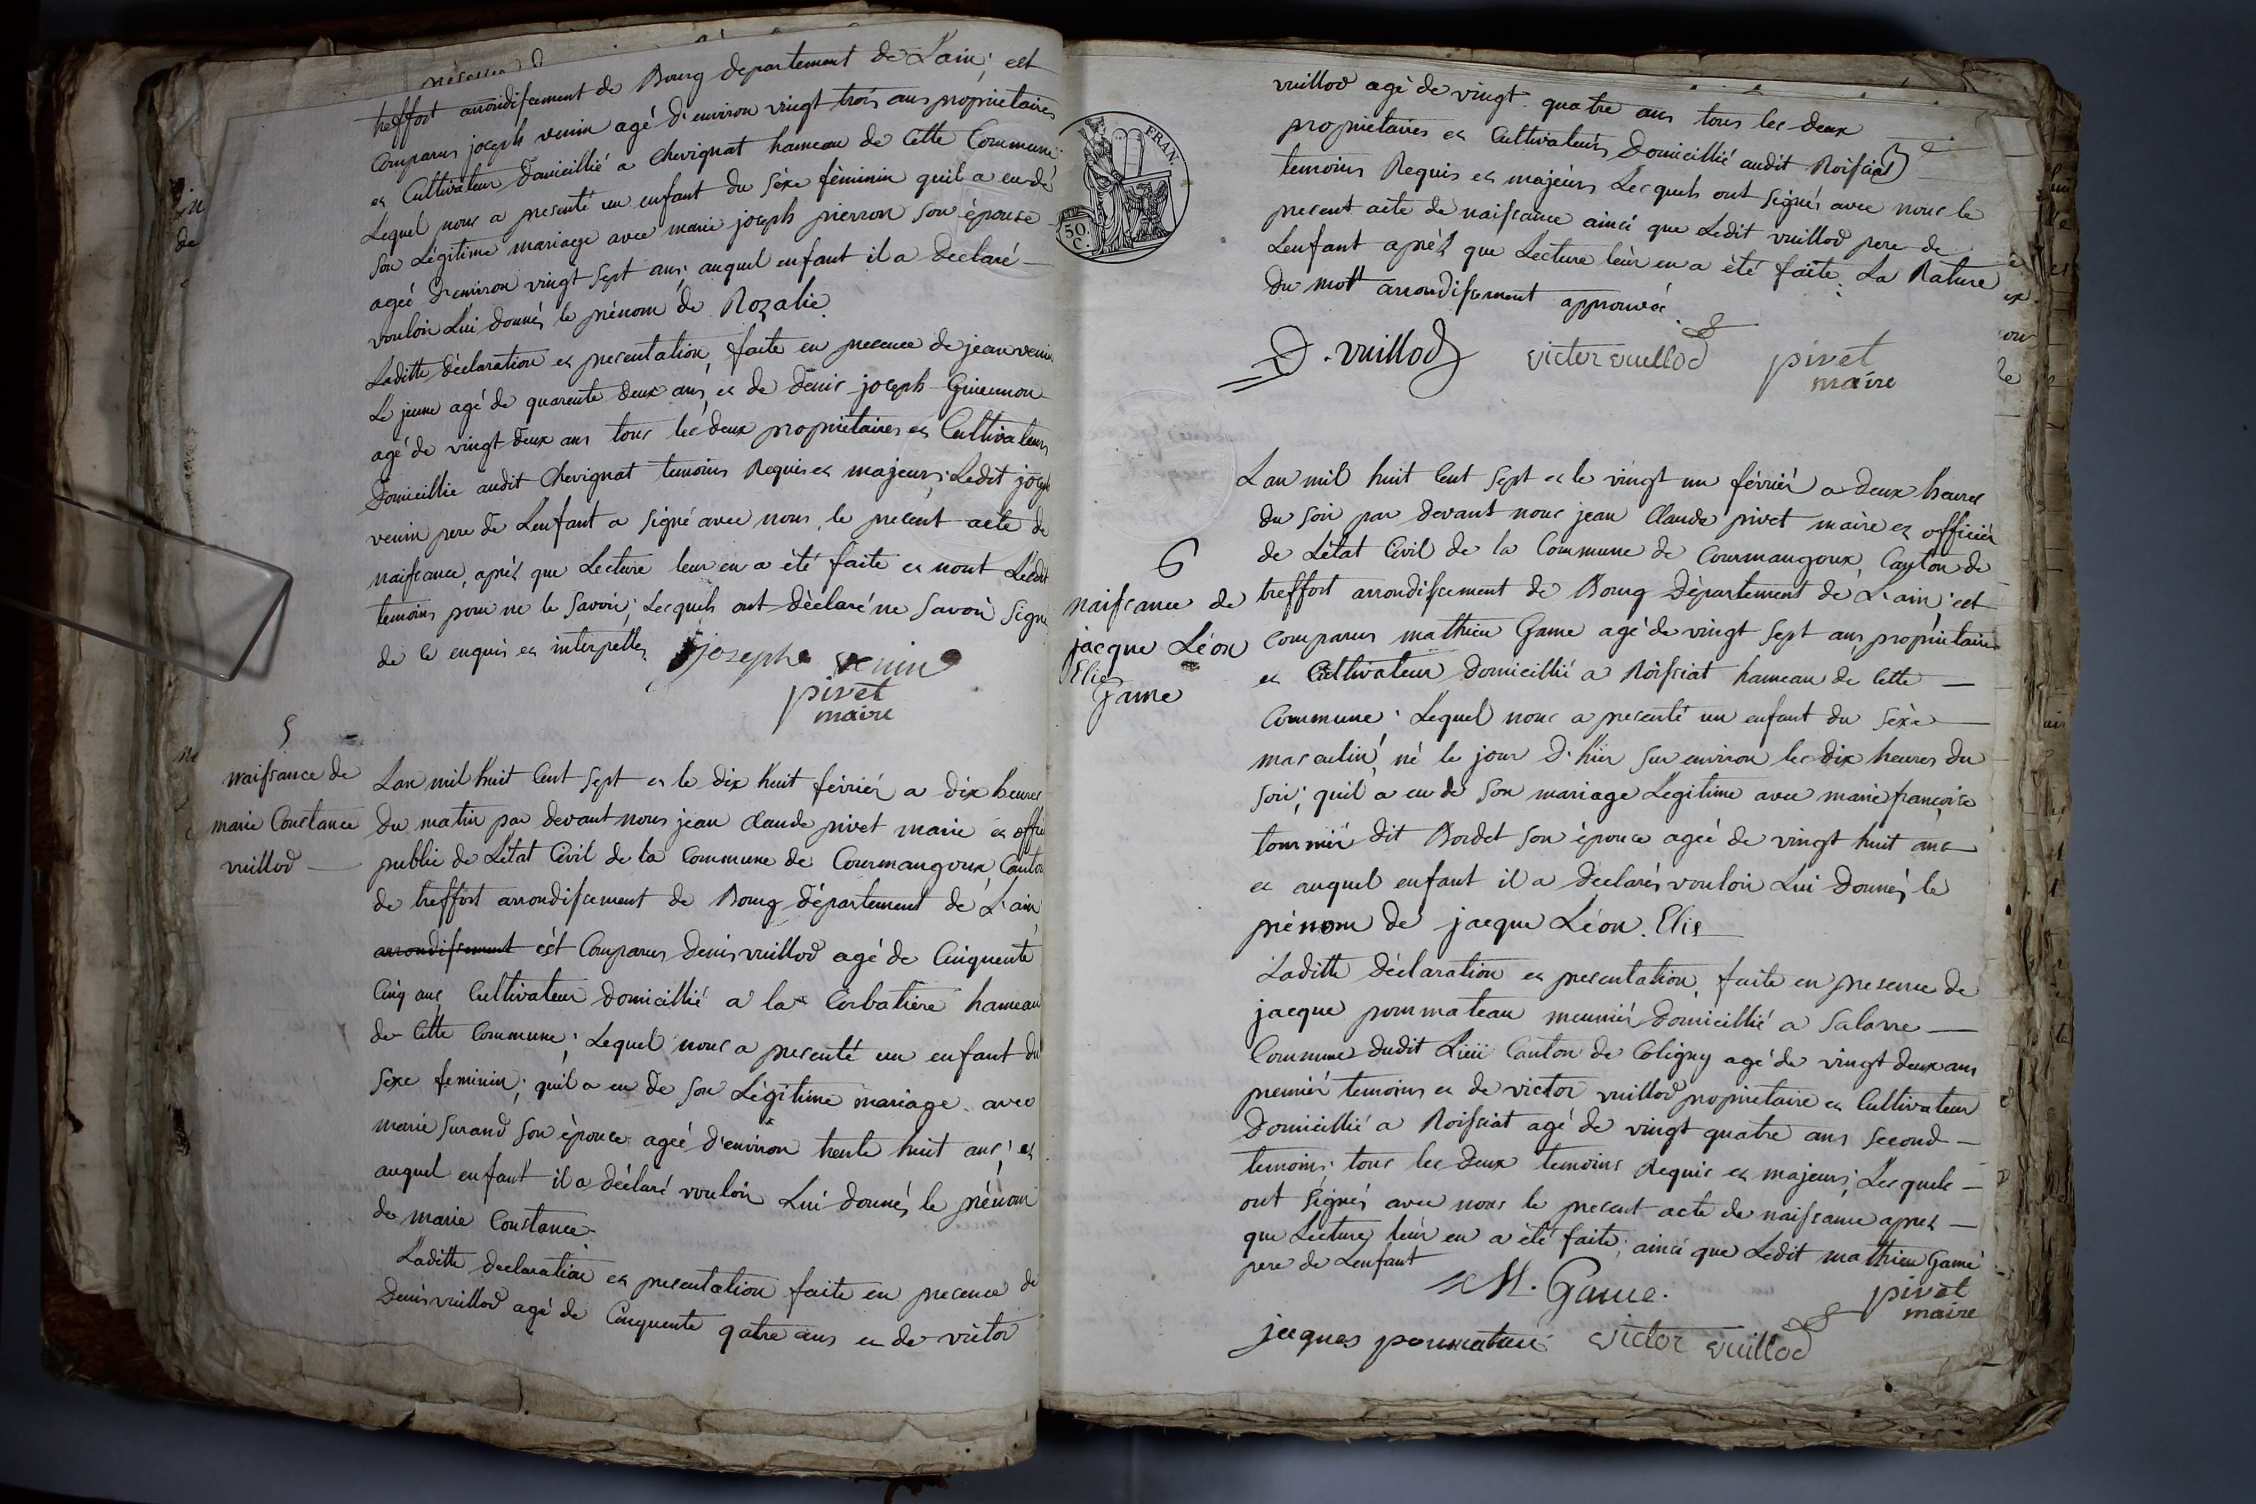 treffort arrondissement de Bourg departement de L'ain; est
Comparus joseph venin agé d'environ vingt trois ans proprietaire
et Cultivateur domicillié a Chevignat hameau de Cette Commune
Lequel nous a presenté un enfant du sèxe féminin quil a eu de
son Légitime mariage avec marie joseph pierron son épouse
ageé d'environ vingt sept ans; auquel enfant il a declaré
vouloir Lui donnér le prénom de Rozalie.
Laditte déclaration et presentation, faite en presence de jean venin
Le jeune agé de quarente deux ans, et de denis joseph
agé de vingt deux ans tous les deux proprietaires et Cultivateurs
domicillie audit Chevignat temoins Requis et majeurs; Ledit joseph
venin pere de Lenfant a signé avec nous, le present acte de
naissance, aprés que Lecture leur en a èté faite et nont Lesdit
temoins pour ne le savoir; Lesquels ont dèclaré ne savoir signé
de ce enquis et interpellés
joseph venin
pivet
maire
5
naissance de
marie Constance
vuillod
Lan mil huit Cent sept et le dix huit février a dix heures
du matin par devant nous jean Claude pivet maire et offi
public de Létat Civil de la Commune de Courmangoux, Canton
de treffort arrondissement de Bourg département de L'ain
arrondissement est Comparus denis vuillod agé de Cinquente
Cinq ans, Cultivateur domicillié a la Corbatière hameau
de Cette Commune; Lequel nous a presenté un enfant du
sexe feminin; quil a eu de son Légitime mariage avec
marie surand son épouce ageé d'environ trente huit ans; et
auquel enfant il a déclaré vouloir Lui donnér le prénom
de marie Constance
Laditte declaration et presentation faite en presence de
denis vuillod agé de Cinquente qatre ans et de victor
FRAN.
50.
C.
vuillod agé de vingt quatre ans tous les deux
proprietaires et Cultivateurs domicillié audit Roissiat
temoins Requis et majeurs Lesquels ont signés avec nous le
present acte de naissance ainsi que Ledit vuillod pere de
Lenfant aprés que Lecture leur en a èté faite; La Rature
du mott arrondissement approuvée
D. vuillod victor vuillod pivet
maire
6
naissance de
jacque Léon
Elie
Game
Lan mil huit Cent sept et le vingt un février a deux heures
du soir par devant nous jean Claude pivet maire et officiér
de Létat Civil de la Commune de Courmangoux, Canton de
treffort arrondissement de Bourg Département de L'ain; est
Comparus mathieu Game agé de vingt sept ans, proprietaire
et Cultivateur domicillié a Roissiat hameau de Cette
Commune; Lequel nous a presenté un enfant du sèxe
masculin, né le jour d'hiér sur environ les dix heures du
soir; quil a eu de son mariage Legitime avec marie françoise
tournier dit Bordet son épouce ageé de vingt huit ans
et auquel enfant il a declarés vouloir Lui donnér le
prénom de jacque Léon. Elie
Laditte déclaration et presentation, faite en presence de
jacque pommateau meuniér domicillié a Salavre
Commune dudit Lieu Canton de Coligny agé de vingt deux ans
premiér temoins et de victor vuillod proprietaire et Cultivateur
domicillié a Roissiat agé de vingt quatre ans second
temoins; tous les deux temoins Requis et majeurs; Lesquels
ont signés avec nous le present acte de naissance aprés
que Lecture leur en a èté faite; ainsi que Ledit mathieu Game
pere de Lenfant
M. Game. pivet
maire
jacques pommateau victor vuillod